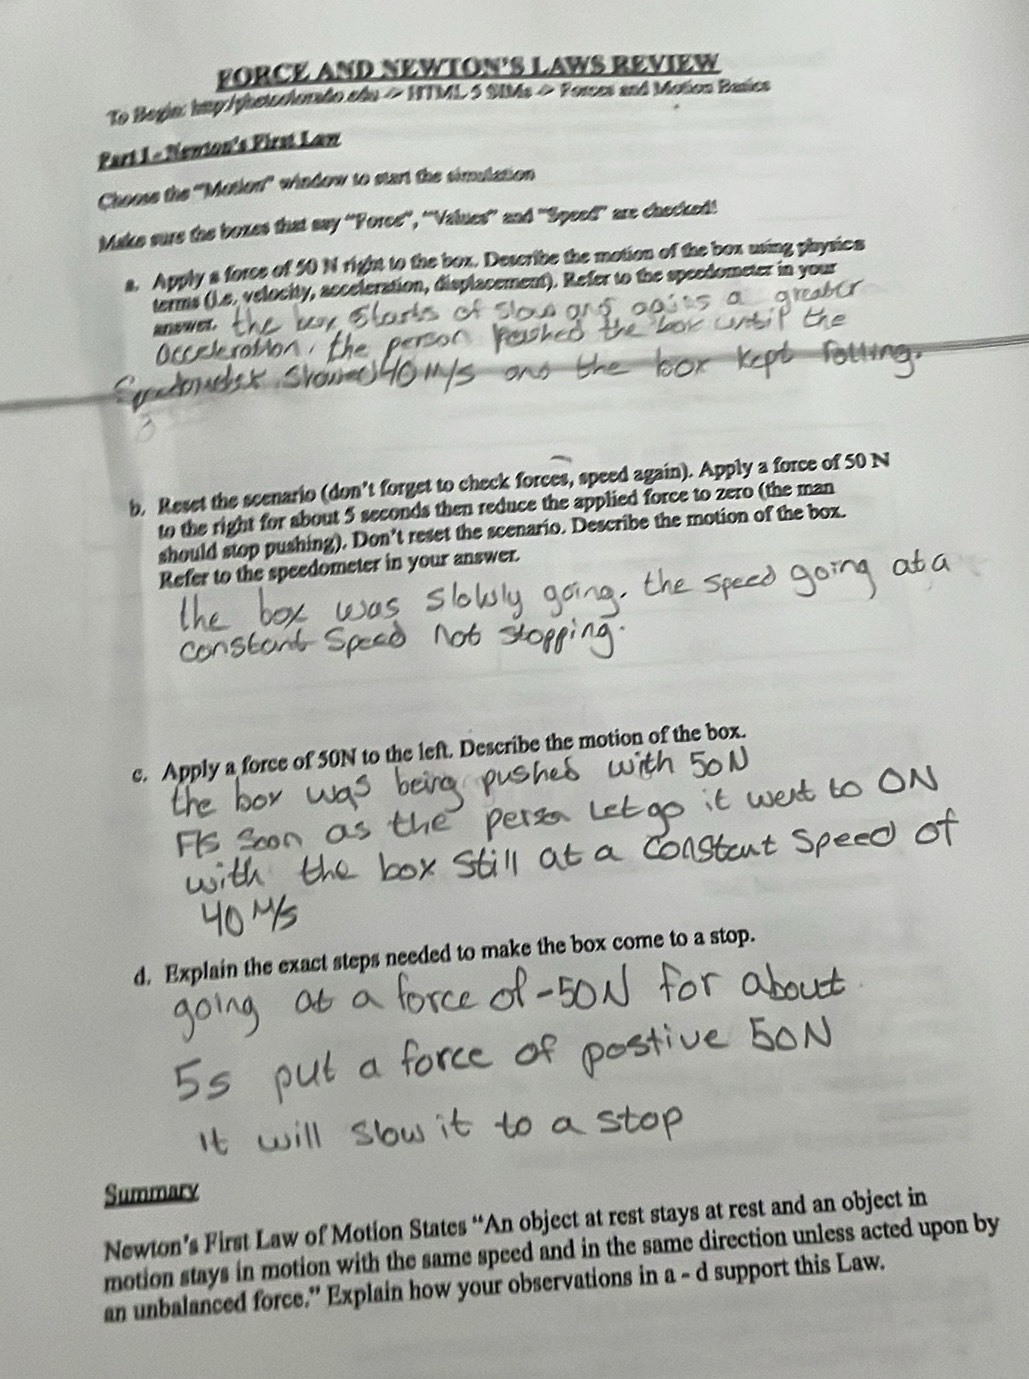 FORCE AND NEWTON'S LAWS REVIEW
To Begin: -> HTML 5 SIMs -> Forces and Motion Basics
Part I - Newton's First Law
Choose the "Motion" window to start the simulation
Make sure the boxes that say "Force", "Values" and "Speed" are checked!
a. Apply a force of 50 N right to the box. Describe the motion of the box using physics
terms (i.e. velocity, acceleration, displacement). Refer to the speedometer in your
answer. the box starts of slow and a greater
acceleration, the person Pushed the box until the
Showed 40 M/s and the box kept rolling.
b. Reset the scenario (don't forget to check forces, speed again). Apply a force of 50 N
to the right for about 5 seconds then reduce the applied force to zero (the man
should stop pushing). Don't reset the scenario. Describe the motion of the box.
Refer to the speedometer in your answer.
the box was slowly going. the speed going at a
constant Speed not stopping.
c. Apply a force of 50N to the left. Describe the motion of the box.
the box was being pushed with 50N
As Soon as the person Let go it went to 0N
with the box Still at a Constant Speed of
40 M/s
d. Explain the exact steps needed to make the box come to a stop.
going at a force of -50N for about
5s put a force of postive 50N
it will slow it to a stop
Summary
Newton's First Law of Motion States "An object at rest stays at rest and an object in
motion stays in motion with the same speed and in the same direction unless acted upon by
an unbalanced force." Explain how your observations in a - d support this Law.